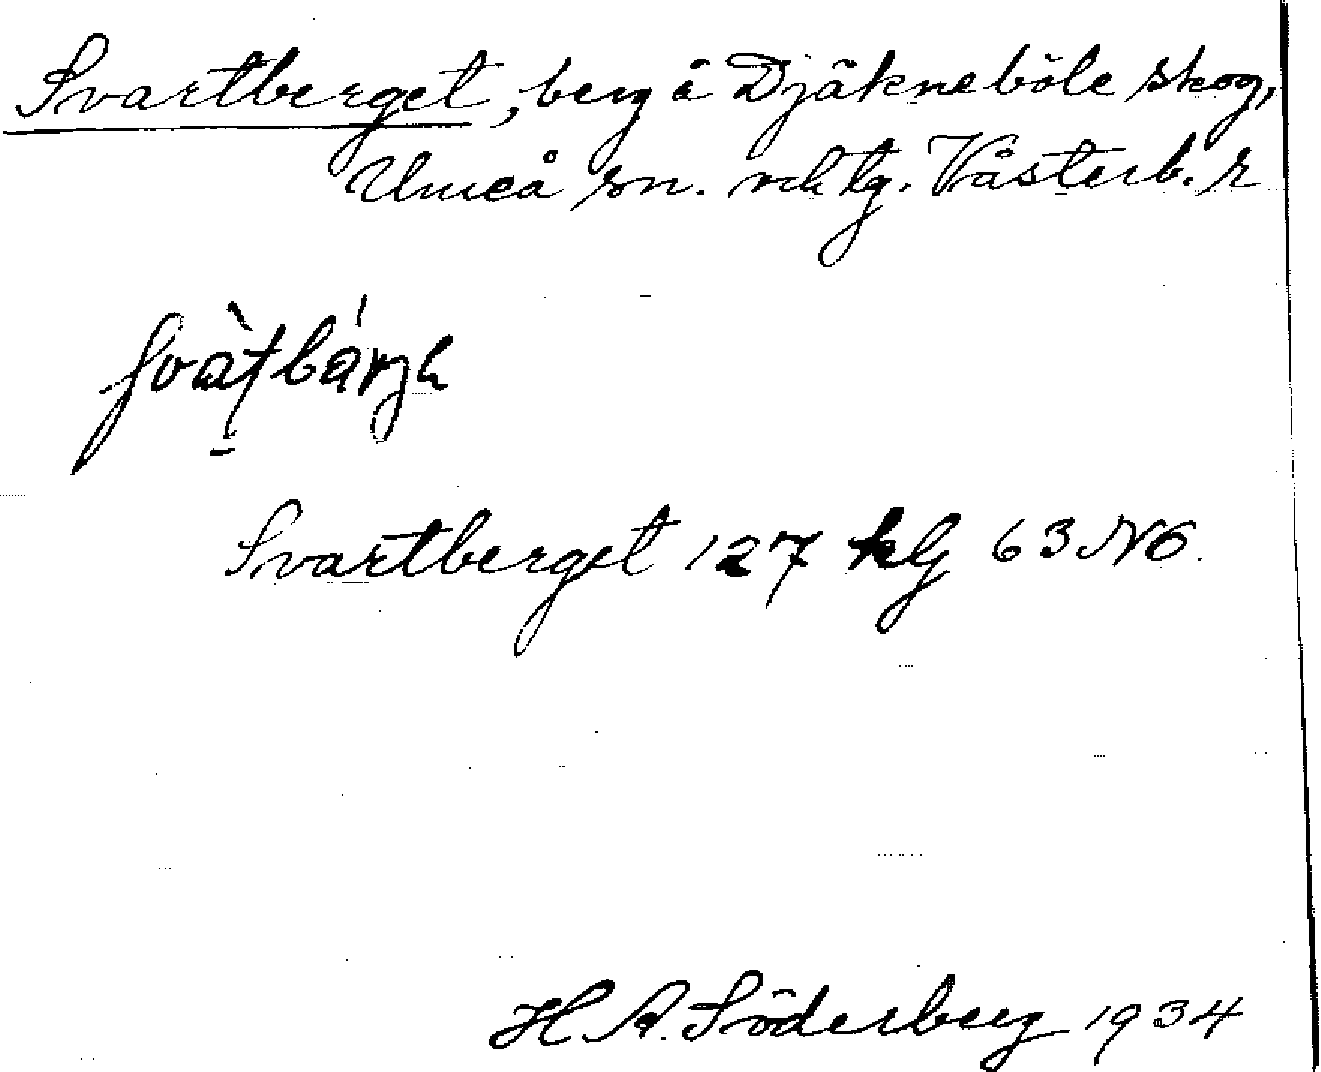 Svartberget, berg å Djäkneböle skog,
Umeå sn. o. ktg. Västerb. l
Svartberget 127 klj 63 NO.
H. A. Söderberg 1934